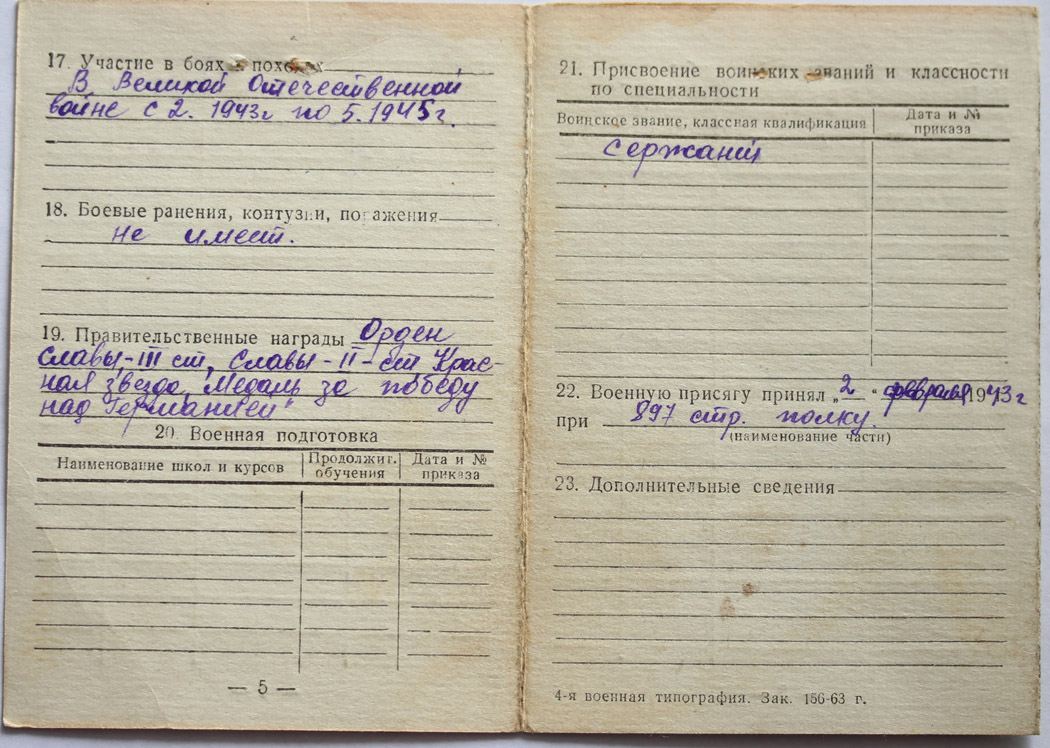 17. Участие в боях и походах
В Великой Отечественной
войне с 2. 1943г по 5. 1945г.
18. Боевые ранения, контузии, поражения
не имеет.
19. Правительственные награды Орден
Славы-III ст, Славы-II-ст Крас-
ная звезда, Медаль за победу
над Германией"
20. Военная подготовка
Наименование школ и курсов
Продолжит. обучения
Дата и № приказа
— 5 —
21. Присвоение воинских званий и классности
по специальности
Воинское звание, классная квалификация
Дата и № приказа
Сержант
22. Военную присягу принял „2" февраля 1943г
при 897 стр. полку.
(наименование части)
23. Дополнительные сведения
4-я военная типография. Зак. 156-63 г.